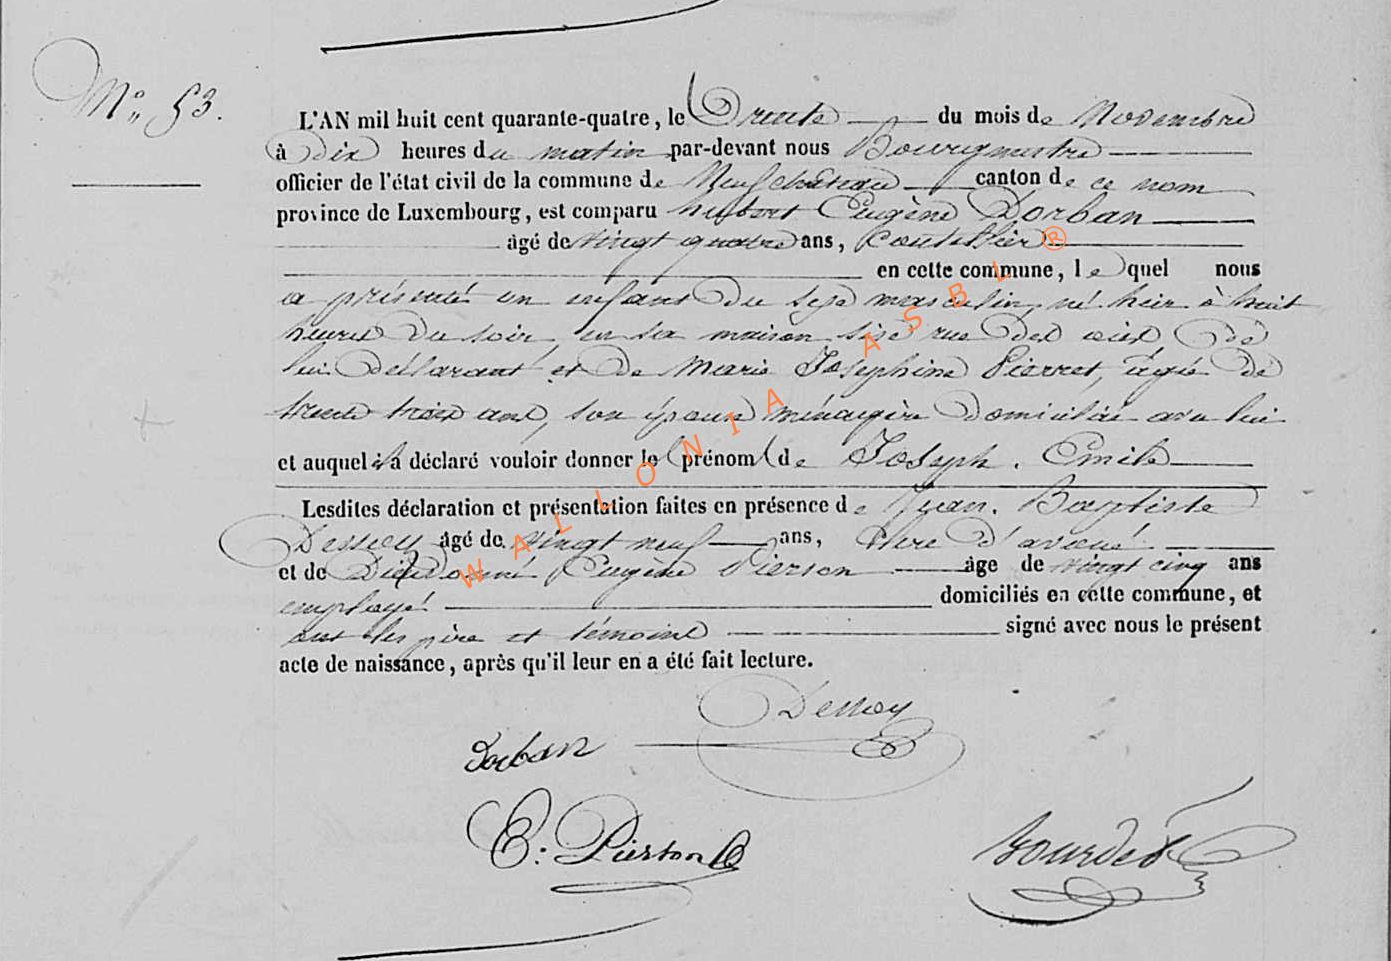 N° 53.
L'AN mil huit cent quarante-quatre, le Trente du mois de Novembre
à Dix heures du matin par-devant nous Bourgmestre
officier de l'état civil de la commune de Neufchâteau canton de ce nom
province de Luxembourg, est comparu hubert Eugène Dorban
âgé de vingt quatre ans, Coutellier
en cette commune, lequel nous
a présenté un enfant du sexe masculin, né hier à huit
heures du soir, en sa maison sise rue des de
lui Déclarant et de Marie Joséphine Pierret, âgée de
trente trois ans, son épouse ménagère domiciliée avec lui
et auquel il a déclaré vouloir donner le prénom de Joseph. Emile
Lesdites déclaration et présentation faites en présence de Jean. Baptiste
Dessoy âgé de vingt neuf ans, Clerc d'avoué
et de Dieudonné Eugène Pierson âgé de vingt cinq ans
employé domiciliés en cette commune, et
ont les père et témoins signé avec nous le présent
acte de naissance, après qu'il leur en a été fait lecture.
Dessoy
Dorban
E. Pierson
Bourdet
WALLONIA ASBL ®